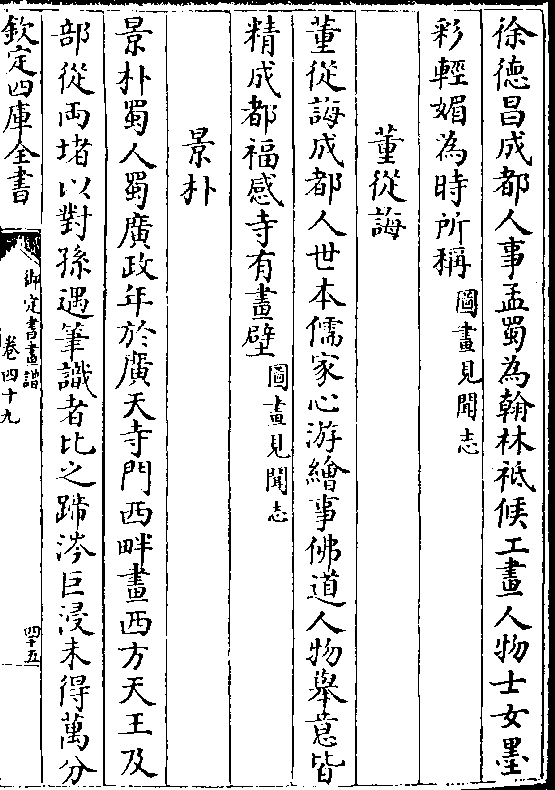 徐德昌成都人事孟蜀為翰林祗候工畫人物士女墨
彩輕媚為時所稱圖畫見聞志
董從誨
董從誨成都人世本儒家心游繪事佛道人物舉意皆
精成都福感寺有畫壁圖畫見聞志
景朴
景朴蜀人蜀廣政年於廣天寺門西畔畫西方天王及
部從兩堵以對孫遇筆識者比之蹄涔巨浸未得萬分
欽定四庫全書
御定書畫譜
卷四十九
四十五